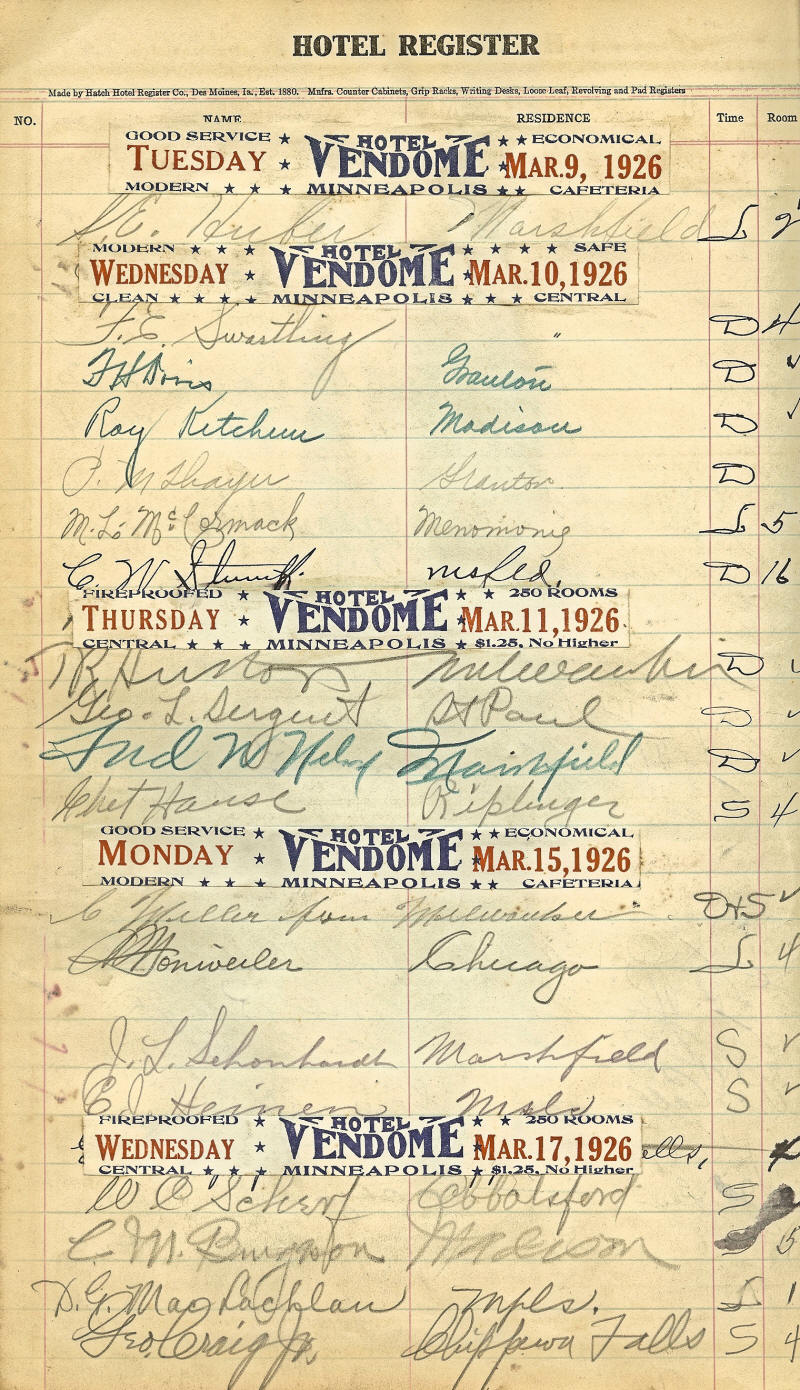 HOTEL REGISTER
Made by Hatch Hotel Register Co., Des Moines, Ia., Est. 1880. Mnfrs. Counter Cabinets, Grip Racks, Writing Desks, Loose Leaf, Revolving and Pad Registers
NO. NAME RESIDENCE Time Room
GOOD SERVICE ★ HOTEL ★ ★ ECONOMICAL
TUESDAY ★ VENDOME ★ MAR. 9, 1926
MODERN ★ ★ ★ MINNEAPOLIS ★ ★ CAFETERIA
S.E. Huber Marshfield L 2
MODERN ★ ★ ★ HOTEL ★ ★ ★ ★ SAFE
WEDNESDAY ★ VENDOME ★ MAR. 10, 1926
CLEAN ★ ★ ★ ★ MINNEAPOLIS ★ ★ ★ CENTRAL
F.E. Swastling " D 4
D ✓
Roy Ketchum Madison D ✓
P. M Thayer Granton. D
M. L. McCormack Menomonie L 5
C. W msfld, D 16
FIREPROOFED ★ HOTEL ★ ★ 250 ROOMS
THURSDAY ★ VENDOME ★ MAR. 11, 1926
CENTRAL ★ ★ ★ MINNEAPOLIS ★ $1.25, No Higher
Huston Milwaukee D ✓
Geo. L. Sergent St Paul D ✓
Fred W Marshfield D ✓
Chet Hause Riplinger S 4
GOOD SERVICE ★ HOTEL ★ ★ ECONOMICAL
MONDAY ★ VENDOME ★ MAR. 15, 1926
MODERN ★ ★ ★ MINNEAPOLIS ★ ★ CAFETERIA
C Miller from Milwaukee D+S ✓
Chicago L 4
J. L. Schonhardt Marshfield S ✓
E J Heinen Mpls S ✓
FIREPROOFED ★ HOTEL ★ ★ 250 ROOMS
WEDNESDAY ★ VENDOME ★ MAR. 17, 1926 ells,
CENTRAL ★ ★ ★ MINNEAPOLIS ★ $1.25, No Higher
W C Scherf Abbotsford S
C. M. Madison 5
D. G. MacLachlan Mpls. L 1
Geo. Craig Jr. Chippawa Falls S 4